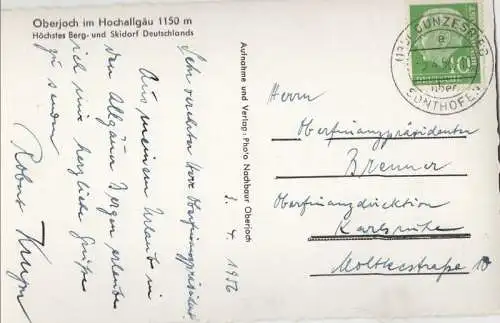 Oberjoch im Hochallgäu 1150 m
Höchstes Berg- und Skidorf Deutschlands
Sehr verehrter Herr Oberfinanzpräsident
Aus meinem Urlaub in
den Allgäuer Bergen erlaube
ich mir herzliche Grüße
zu senden
Robert
Aufnahme und Verlag: Photo Nachbaur Oberjoch
3. 4. 1956
über
SONTHOFEN
10
Herrn
Oberfinanzpräsidenten
Brenner
Oberfinanzdirektion
Karlsruhe
Moltkestraße 10